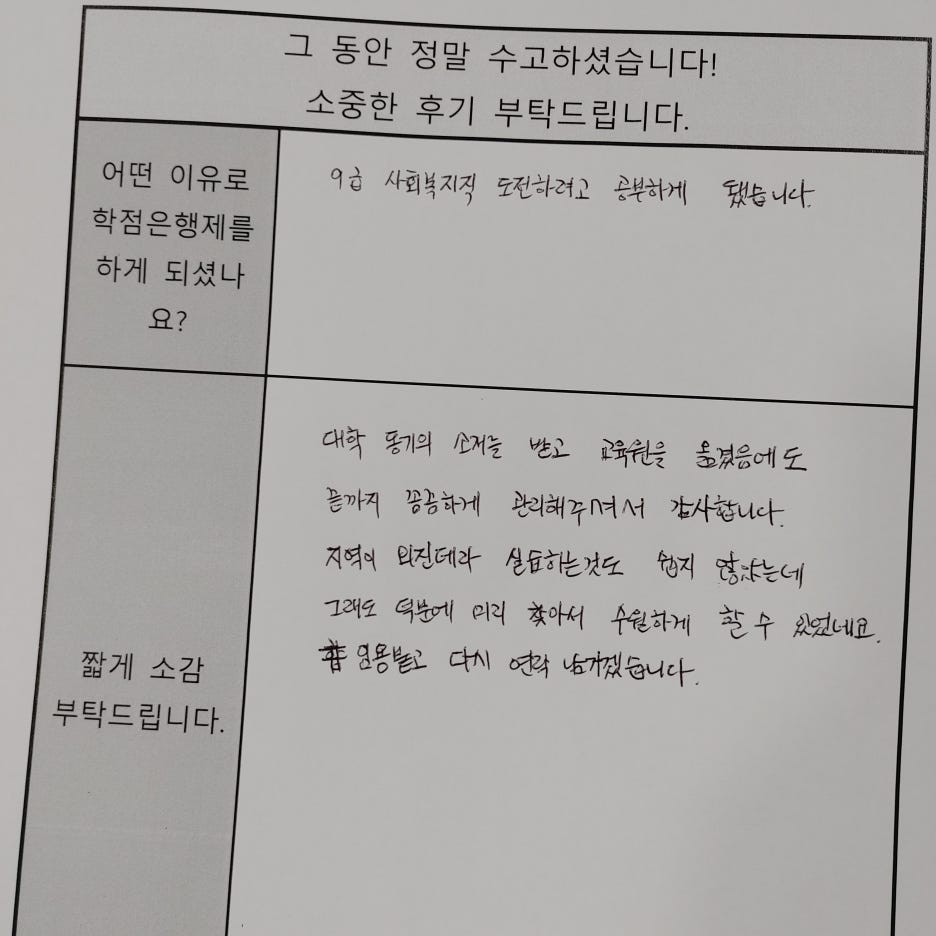 그 동안 정말 수고하셨습니다!
소중한 후기 부탁드립니다.
어떤 이유로
학점은행제를
하게 되셨나
요?
9급 사회복지직 도전하려고 공부하게 됐습니다.
대학 동기의 소개를 받고 교육원을 옮겼음에도
끝까지 꼼꼼하게 관리해주셔서 감사합니다.
지역이 외진데라 실습하는것도 쉽지 않았는데
그래도 덕분에 미리 찾아서 수월하게 할 수 있었네요.
임용받고 다시 연락 남기겠습니다.
짧게 소감
부탁드립니다.